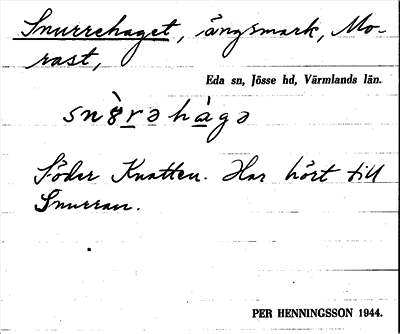 Snurrehaget, ängsmark, Mo-
rast,
Eda sn, Jösse hd, Värmlands län.
sn8̀rə hàgə
Söder Knatten. Har hört till
Snurran.
PER HENNINGSSON 1944.